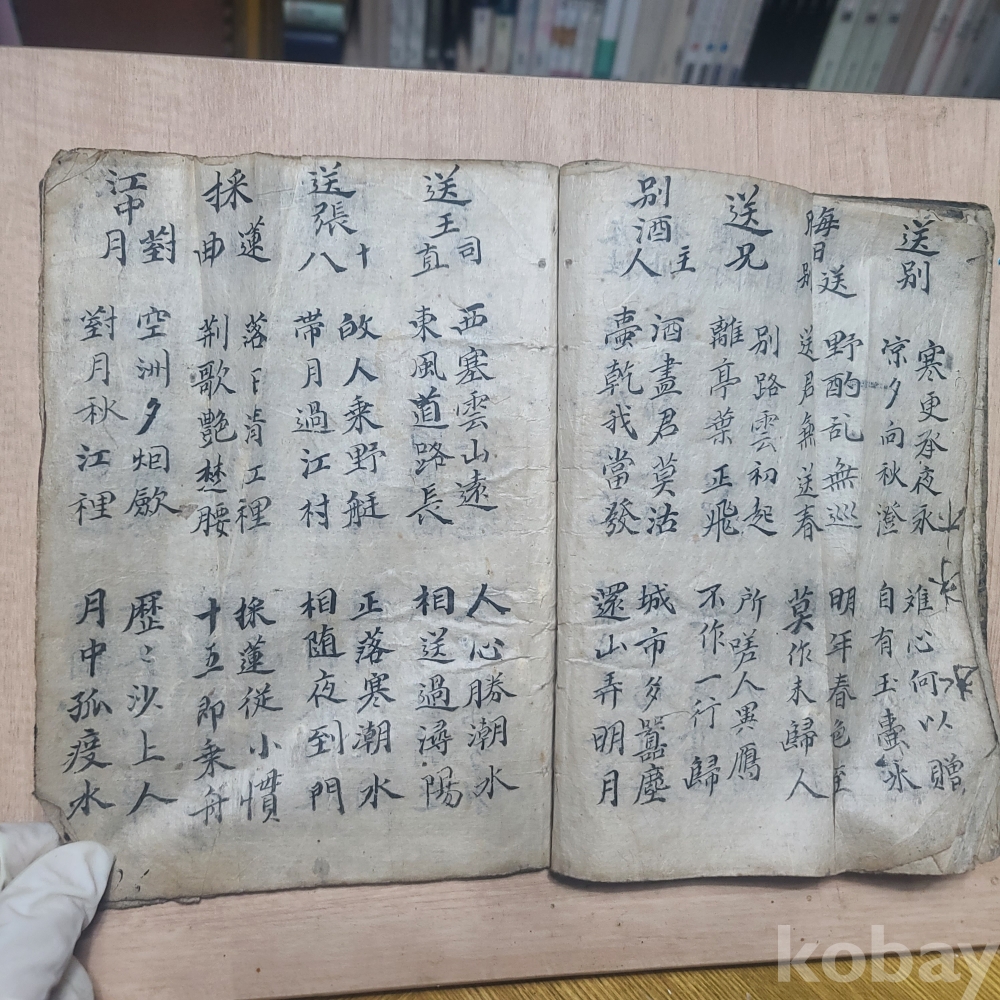 送別
寒更承夜永 难心何以贈
凉夕向秋澄 自有玉壺氷
晦日送別
野酌乱無巡 明年春色至
送君無送春 莫作未歸人
送兄
別路雲初起 所嗟人異鴈
離亭葉正飛 不作一行歸
別酒主人
酒盡君莫沽 城市多囂塵
壺乾我當發 還山弄明月
送王司直
西塞雲山遠 人心勝潮水
東風道路長 相送過潯陽
送張十八
故人乘野艇 正落寒潮水
帶月過江村 相随夜到門
採蓮曲
落日清江裡 採蓮從小慣
荊歌艶楚腰 十五即乘舟
江中對月
空洲夕烟歛 歷〻沙上人
對月秋江裡 月中孤渡水
kobay